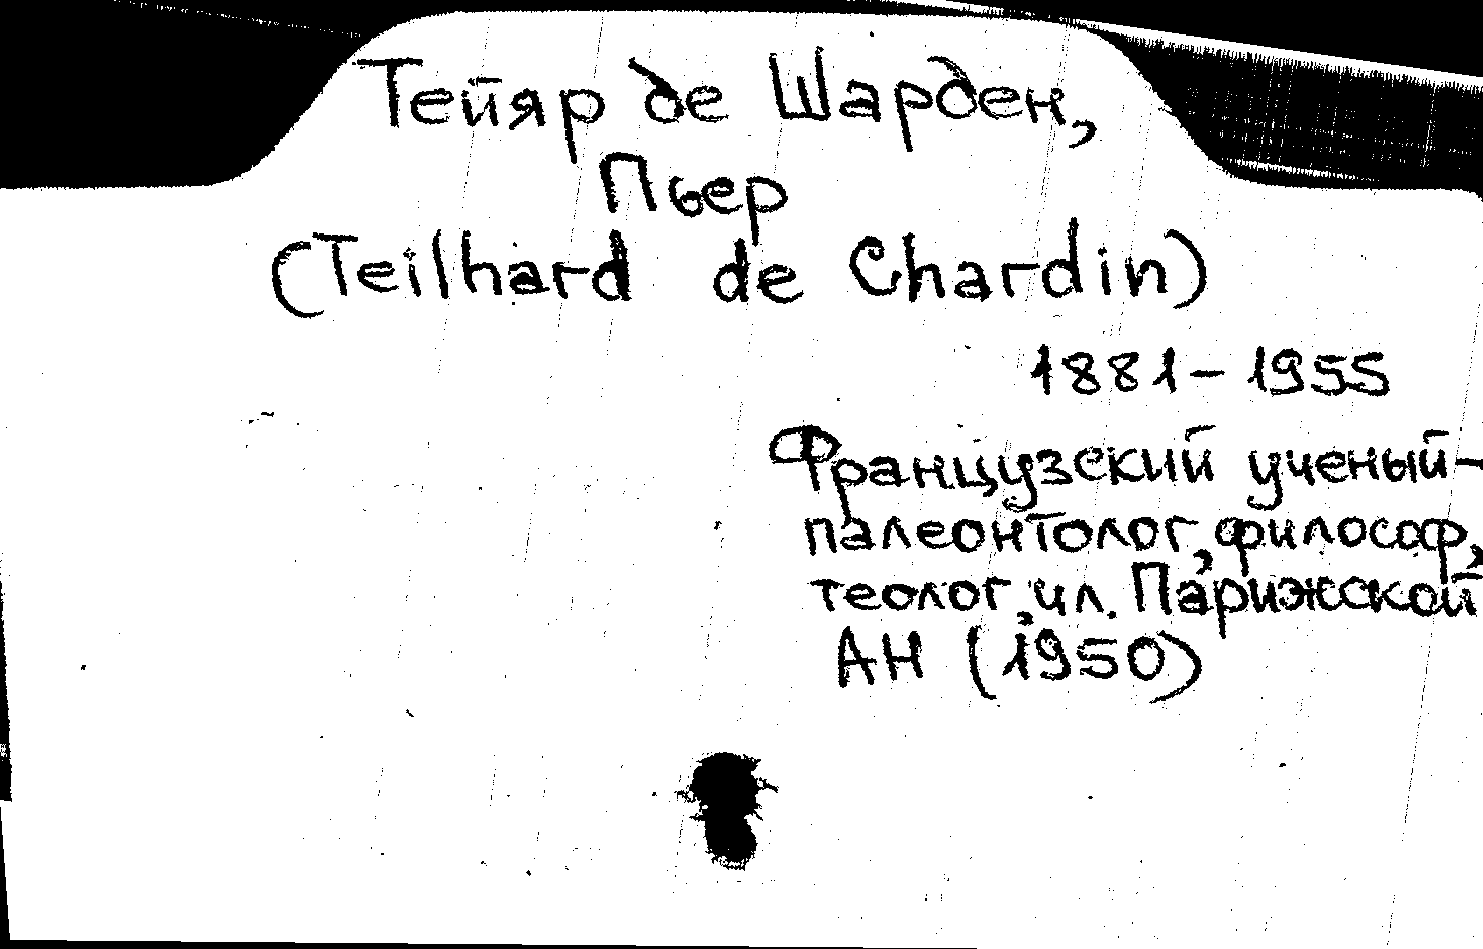 Тейяр де Шарден,
Пьер
(Teilhard de Chardin)
1881-1955
Французский ученый-
палеонтолог, философ,
теолог, чл. Парижской
АН (1950)